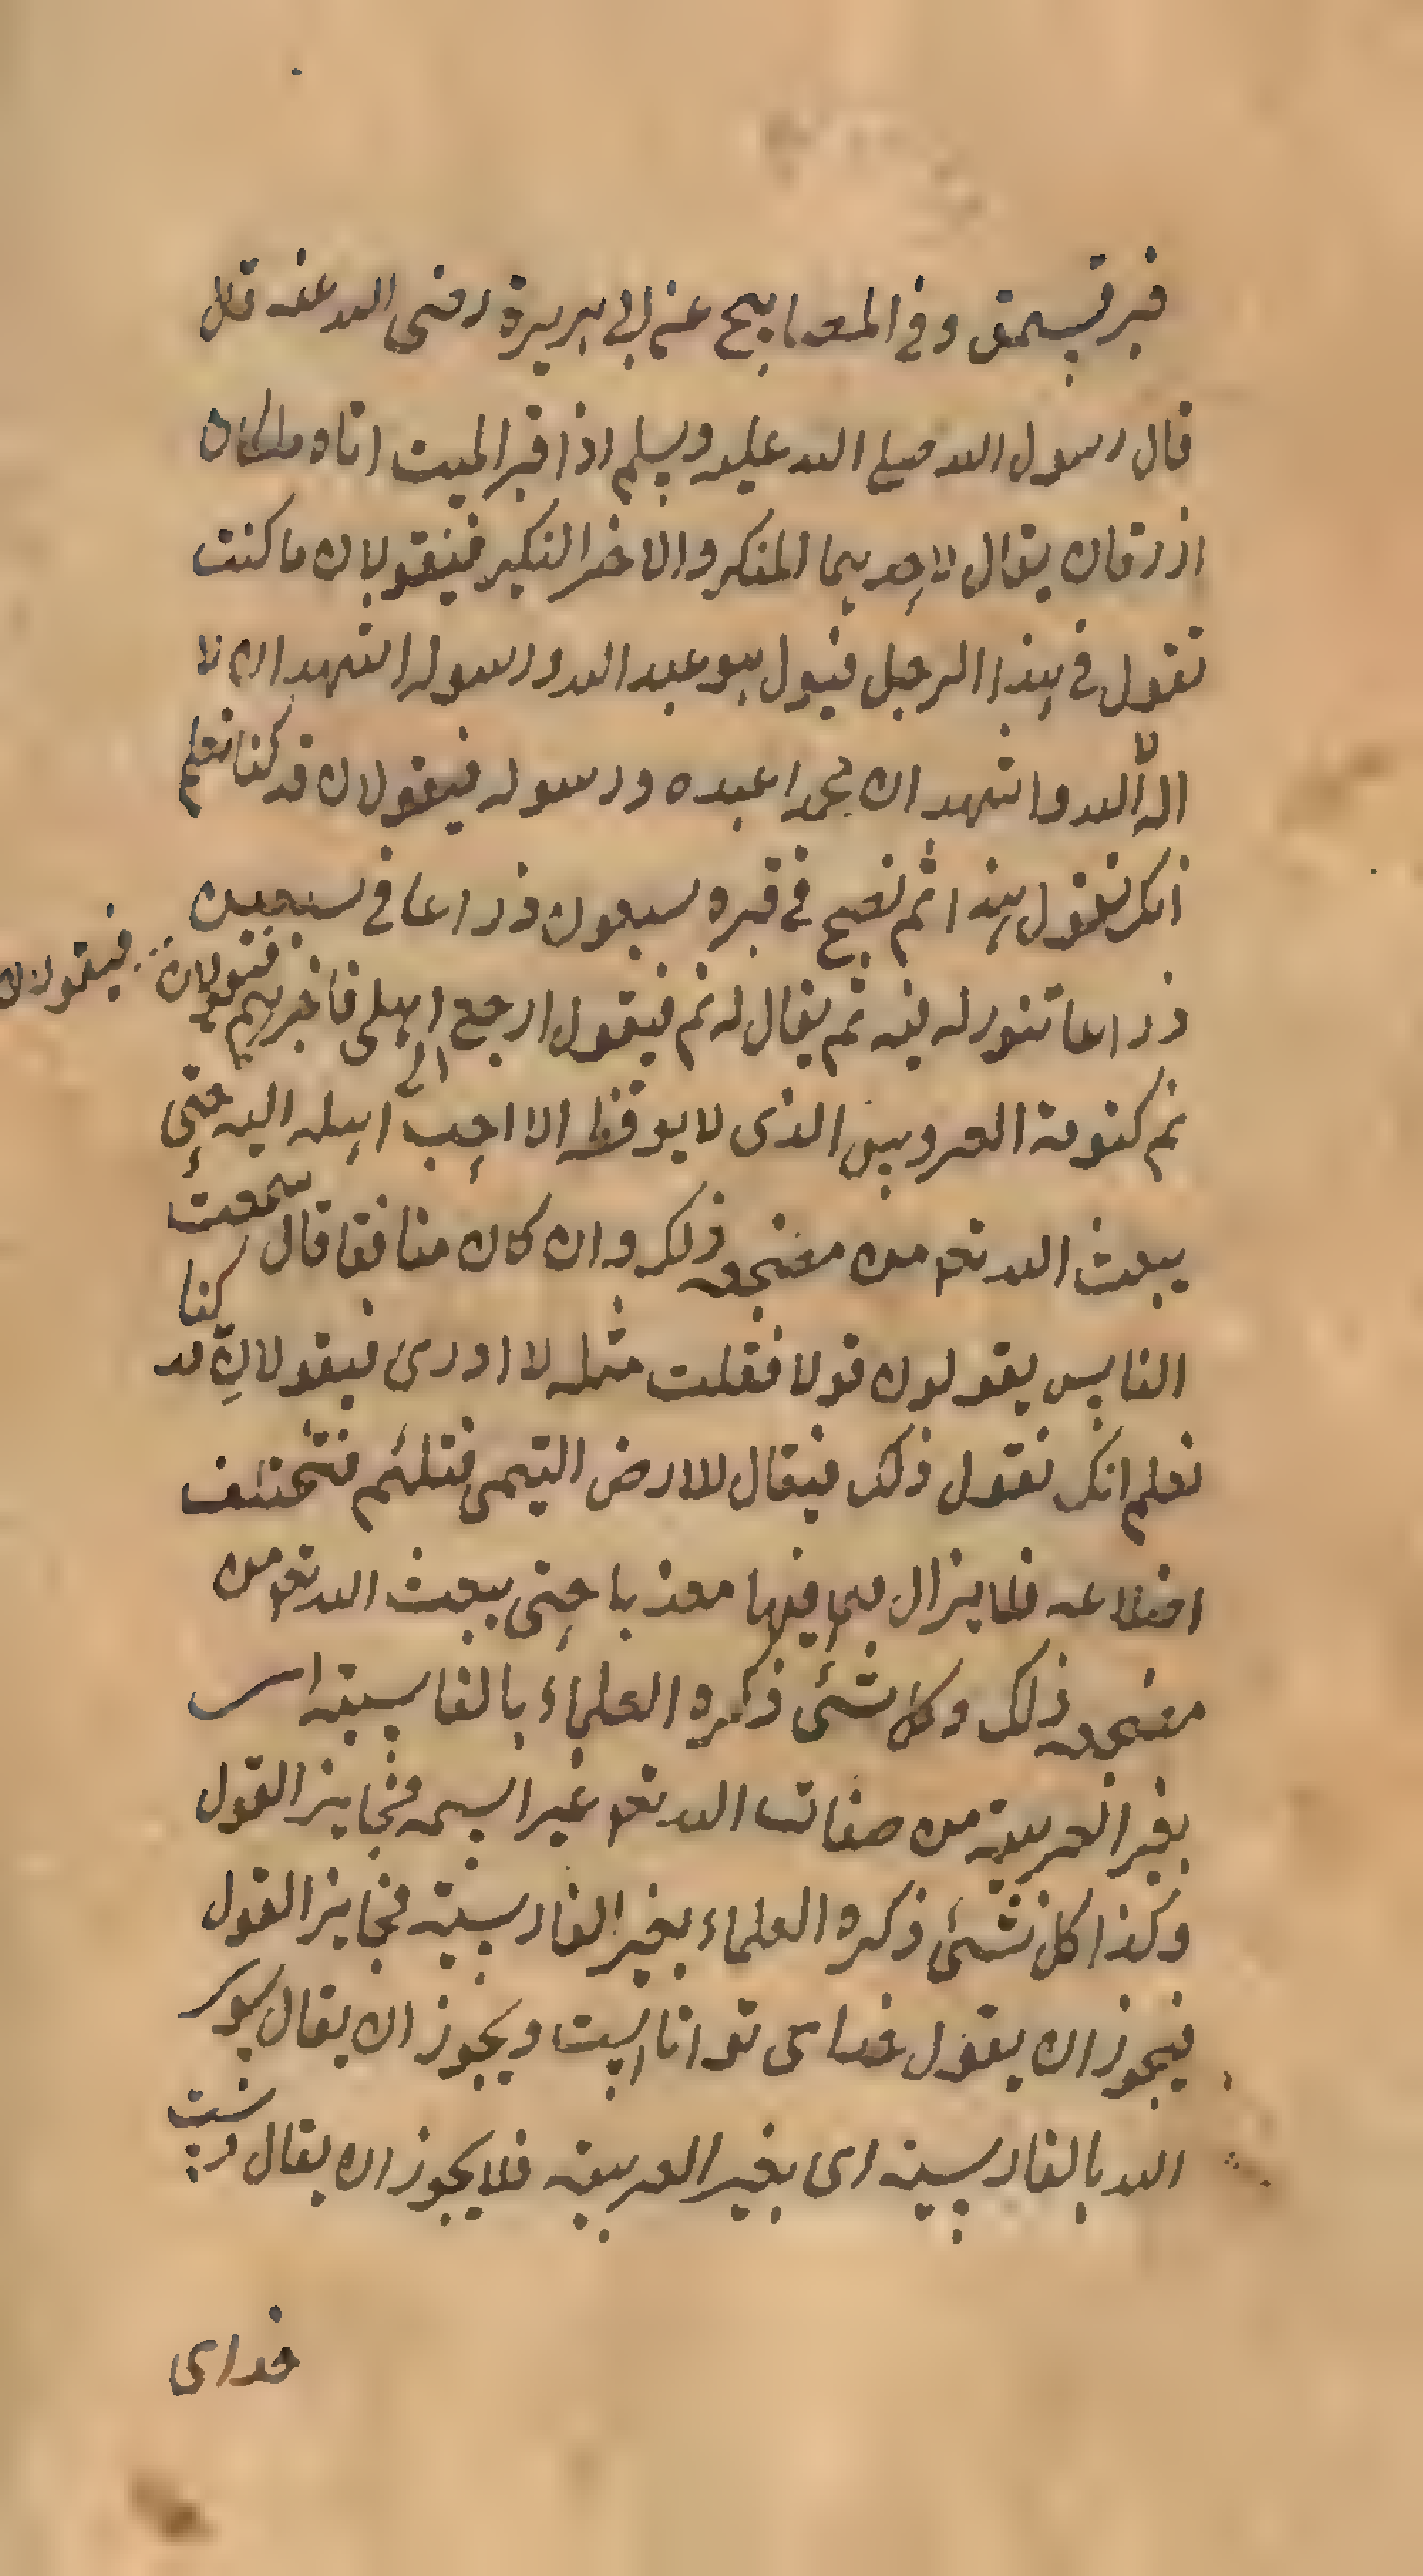 فبرقسمق وفي المصابيح عن ابي هريرة رضى الله عنه قال
قال رسول الله صلى الله عليه وسلم اذا قبر الميت اتاه ملكان
ازرقان يقال لاحدهما المنكر والاخر النكير فيقولان ما كنت
تقول في هذا الرجل فيقول هو عبد الله ورسوله اشهد ان لا
اله الا الله واشهد ان محمدا عبده ورسوله فيقولان قد كنا نعلم
انك تقول هذا ثم نفسح في قبره سبعون ذراعا في سبعين
ذراعا تنور له فيه ثم يقال له نم فيقول ارجع الى اهلى فاخبرهم فيقولان فيقولان
نم كنومة العروس الذى لا يوقظه الا احب اهله اليه حتى
يبعث الله تعم من مضجعه ذلك وان كان منافقا قال سمعت
الناس يقولون قولا فقلت مثله لا ادرى فيقولان قد كنا
نعلم انك تقول ذلك فيقال للارض التيمى فتلئم فتختلف
اضلاعه فلا يزال فيها معذبا حتى يبعث الله تعم من
مضجعه ذلك وكل شئى ذكره العلماء بالفاسية اى
بغير العربية من صفات الله تعم غير اسمه فجايز القول
وكذا كل شئى ذكره العلماء بغير الفارسية فجايز القول
فيجوز ان يقول خداى تو انا است ويجوز ان يقال
الله بالفارسية اى بغير العربية فلا يجوز ان يقال
خداى